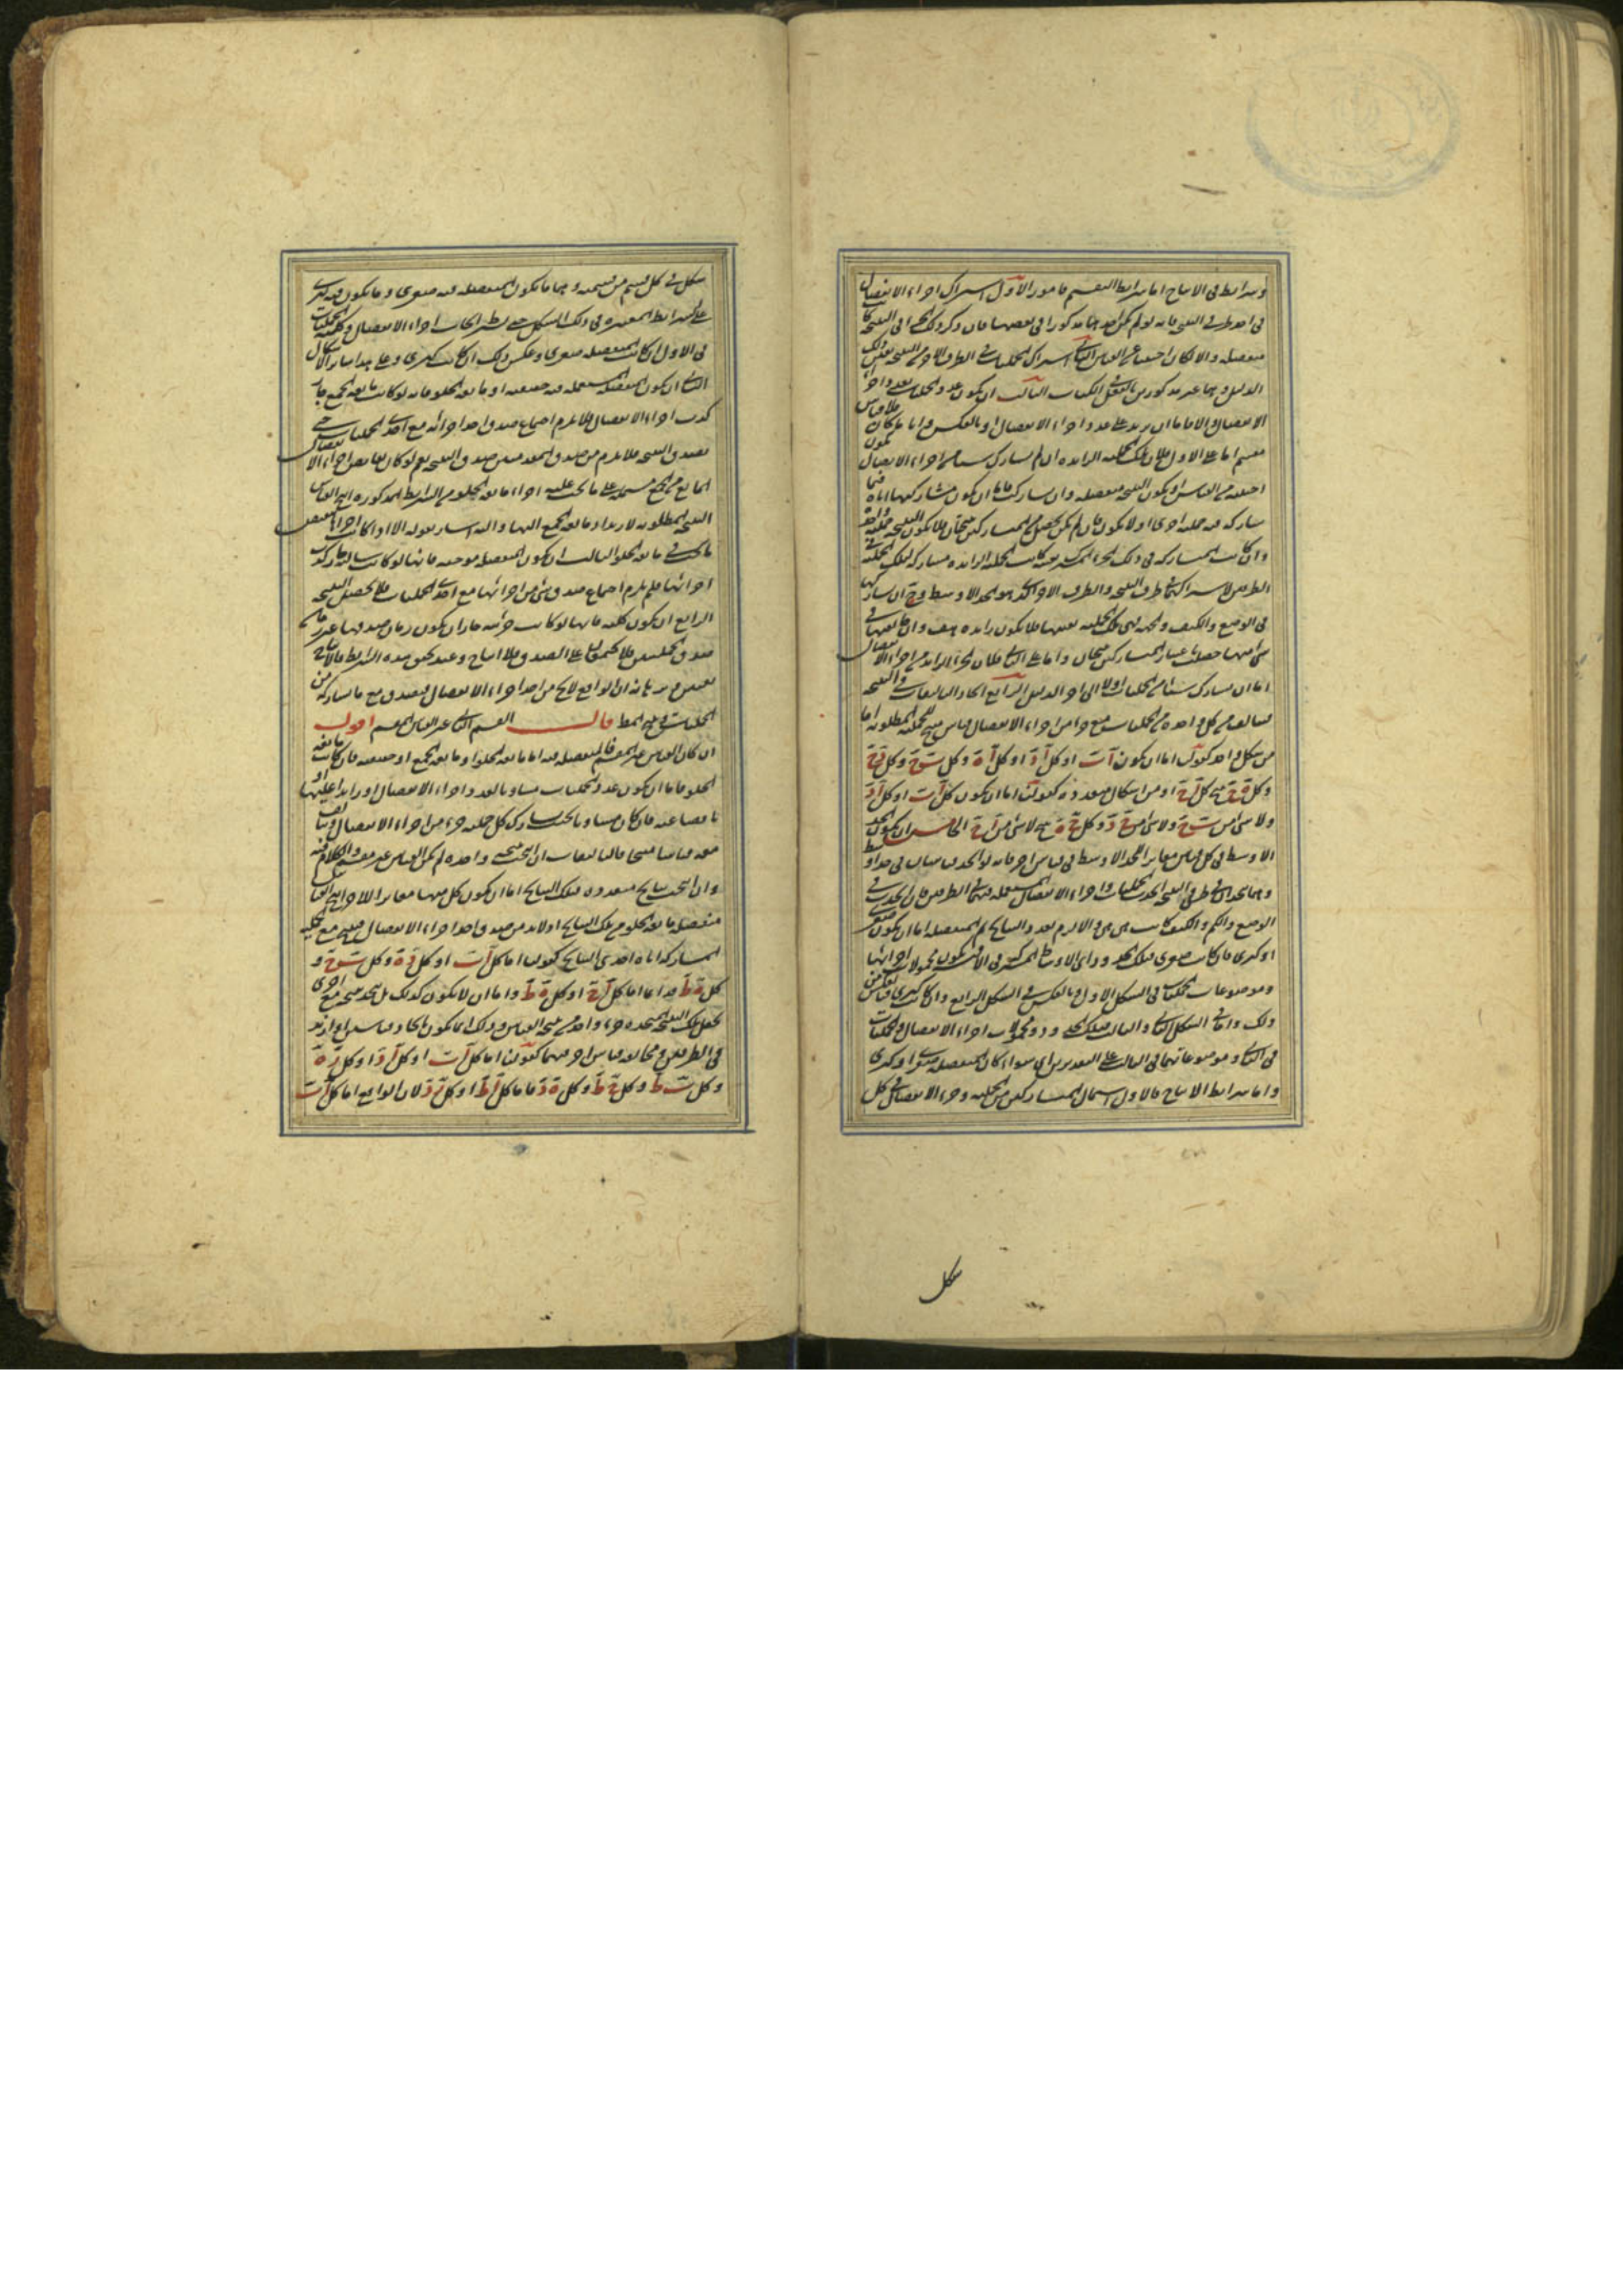 وشرايط فى الانتاج اما شرايط التقسيم فامور الاول اشتراك اجزاء الانفصال
فى احد طرفى النتيجة فانه لو لم يكن احدهما مذكورا فى بعضها فان ذكر ذلك الجزء فى النتيجة كا
منفصلة والا لكان اجنبيا عن القياس الثانى اشتراك الحمليات فى الطرف الاخر من النتيجة بعين ذلك
الدليل وهما غير مذكورين بالفعل الثالث ان يكون عدد الحمليات بعدد اجزاء
الانفصال والا فاما ان يزيد على عدد اجزاء الانفصال او بالعكس وايا ما كان فلا قياس
مقسم اما على الاول فلان تلك الحملية الزايدة ان لم تشارك شيئا من اجزاء الانفصال يكون
اجنبية من القياس او يكون النتيجة منفصلة وان شاركت فاما ان يكون مشاركتها اياه فيما
شاركه فيه حملية اخرى او لا يكون فان لم يكن يحصل من المتشاركين نتيجتان فلا يكون النتيجة حملية واحدة
وان كانت المشاركة فى ذلك الجزء المشترك فيه كانت الحملية الزايدة مشاركة لتلك الحملية فى
الطرفين لاشتراكهما فى طرف النتيجة والطرف الاخر الذى هو الحد الاوسط وح ان شاركتها
فى الوضع والكيف والجهة فهى تلك الحملية بعينها فلا يكون زايدة هف وان خالفتها فى
شئ منها حصلت باعتبار المتشاركين نتيجتان واما على الثانى فلان الجزء الزايد من اجزاء الانفصال
اما ان يشارك شيئا من الحمليات او لا الى اخر الدليل الرابع اتحاد التاليفات فى النتيجة
فتاليف كل واحدة من الحمليات مع جزء من اجزاء الانفصال قياس ينتج للحملية المطلوبة اما
من شكل واحد كقولنا اما ان يكون كل آب او كل آد او كل آه وكل ب ج وكل د ج
وكل ه ج ينتج كل آج او من اشكال متعددة كقولنا اما ان يكون كل آب او كل آد
ولا شئ من ب ج ولا شئ من ج د وكل ج ه ينتج لا شئ من آج الخامس ان يكون الحد
الاوسط فى كل قياس مغايرا للحد الاوسط فى قياس اخر فانه لو اتحد قياسان فى حد اوسط
وهما متحدان فى طرفى النتيجة اتحدت الحمليات واجزاء الانفصال المشتملة عليهما فى الطرفين فان اتحدت فى
الوضع والكم والكيف كانت هى هى والا لزم تعدد النتايج ثم المنفصلة اما ان يكون صغرى
او كبرى فان كانت صغرى فتلك الحدود اى الاوساط المشتركة فى الاقيسة يكون محمولات اجزائها
وموضوعات الحمليات فى الشكل الاول وبالعكس فى الشكل الرابع وان كانت كبرى فبالعكس من
ذلك واما فى الشكل الثانى والثالث فتلك الحدود محمولات اجزاء الانفصال والحمليات
فى الثانى وموضوعاتهما فى الثالث على التقديرين اى سواء كان المنفصلة صغرى او كبرى
واما شرايط الانتاج فالاول اشتمال المتشاركين من الحملية وجزء الانفصال فى كل
شكل
شكل فى كل قسم من قسميه وهما ما يكون المنفصلة فيه صغرى وما يكون فيه كبرى
على الشرايط المعتبرة فى ذلك الشكل حتى يشترط ايجاب اجزاء الانفصال وكلية الحمليات
فى الاول ان كانت المنفصلة صغرى وعكس ذلك ان كانت كبرى وعلى هذا ساير الاشكال
الثانى ان يكون المنفصلة المستعملة فيه حقيقية او مانعة الخلو فانه لو كانت مانعة الجمع جاز
كذب اجزاء الانفصال فلا يلزم اجتماع صدق احد اجزائه مع احدى الحمليات حتى
يصدق النتيجة فلا يلزم من صدق المقدمتين صدق النتيجة نعم لو كان نقايض اجزاء الانفصال
المانع من الجمع مشتملة على ما يجب عليه اجزاء مانعة الخلو من الشرايط المذكورة انتج القياس
النتيجة المطلوبة لارتداد مانعة الجمع اليها واليه اشار بقوله الا اذا كانت نقايض اجزائها
ما يجب فى مانعة الخلو الثالث ان يكون المنفصلة موجبة فانها لو كانت سالبة جاز كذب
اجزائها فلم يلزم اجتماع صدق شئ من اجزائها مع احدى الحمليات فلا يحصل النتيجة
الرابع ان يكون كلية فانها لو كانت جزئية جاز ان يكون زمان صدقها غير زمان
صدق الحمليتين فلا يجتمعان على الصدق فلا انتاج وعند تحقق هذه الشرايط فالانتاج
بين برهانه ان الواقع لا يخلو من احد اجزاء الانفصال فيصدق مع ما يشاركه من
الحمليات وينتج المط قال القسم الثانى غير القياس المقسم اقول
ان كان القياس غير المقسم فالمنفصلة فيه اما مانعة الخلو او مانعة الجمع او حقيقية فان كانت مانعة
الخلو فاما ان يكون عدد الحمليات مساويا لعدد اجزاء الانفصال او زايدا عليها او
ناقصا عنه فان كان مساويا بحيث يشارك كل حملية جزءا من اجزاء الانفصال وتالف
معه قياسا منتجا فالتاليفات ان انتجت نتيجة واحدة لم يكن القياس غير مقسم والكلام فيه
وان انتجت نتايج متعددة فتلك النتايج اما ان يكون كل منها مغايرا للاخر انتج القياس
منفصلة مانعة الخلو من تلك النتايج اذ لا بد من صدق احد اجزاء الانفصال فينتج مع الحملية
المشاركة اياه احدى النتايج كقولنا اما كل آب او كل د ه وكل ب ج و
كل ه ط دايما اما كل آج او كل د ط واما ان لا يكون كذلك بل يتحد نتيجة مع اخرى
يجعل تلك النتيجة المتحدة جزءا واحدا من نتيجة القياس وذلك انما يكون باتحاد قياسين او ازيد
فى الطرفين ومخالفة قياس اخر فيهما كقولنا اما كل آب او كل آد او كل ز ه
وكل ب ط وكل د ط وكل ه د فاما كل آط او كل ز د لان الواقع اما كل آب